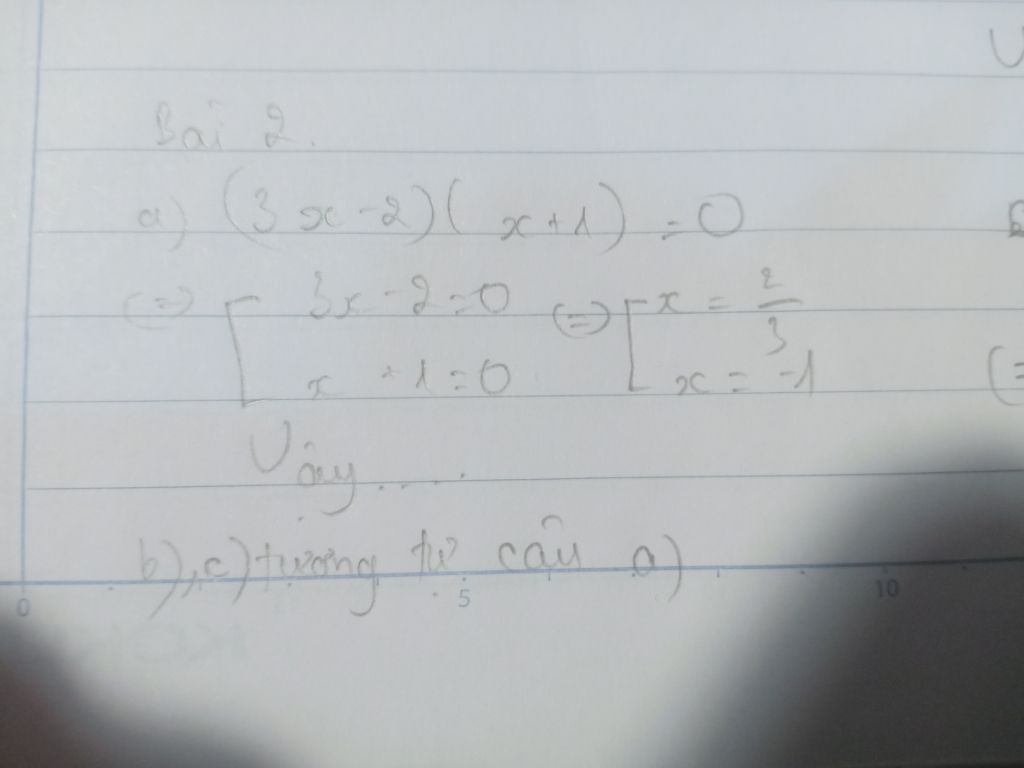 Bài 2.
a) (3x-2)(x+1)=0
(=) [ 3x-2=0 (=) [ x = 2/3
x +1=0 x = -1
Vậy.....
b), c) tương tự câu a)
0 5 10